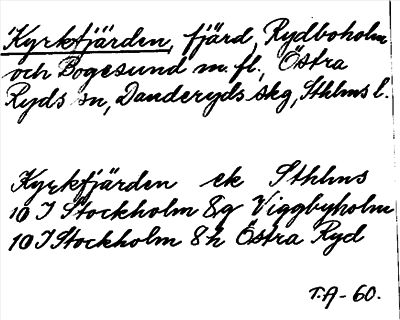 Kyrkfjärden, fjärd, Rydboholm
och Bogesund m.fl., Östra
Ryds sn, Danderyds skg, Sthlms l.
Kyrkfjärden ek Sthlms
10 I Stockholm 8g Viggbyholm
10 I Stockholm 8h Östra Ryd
T.A-60.